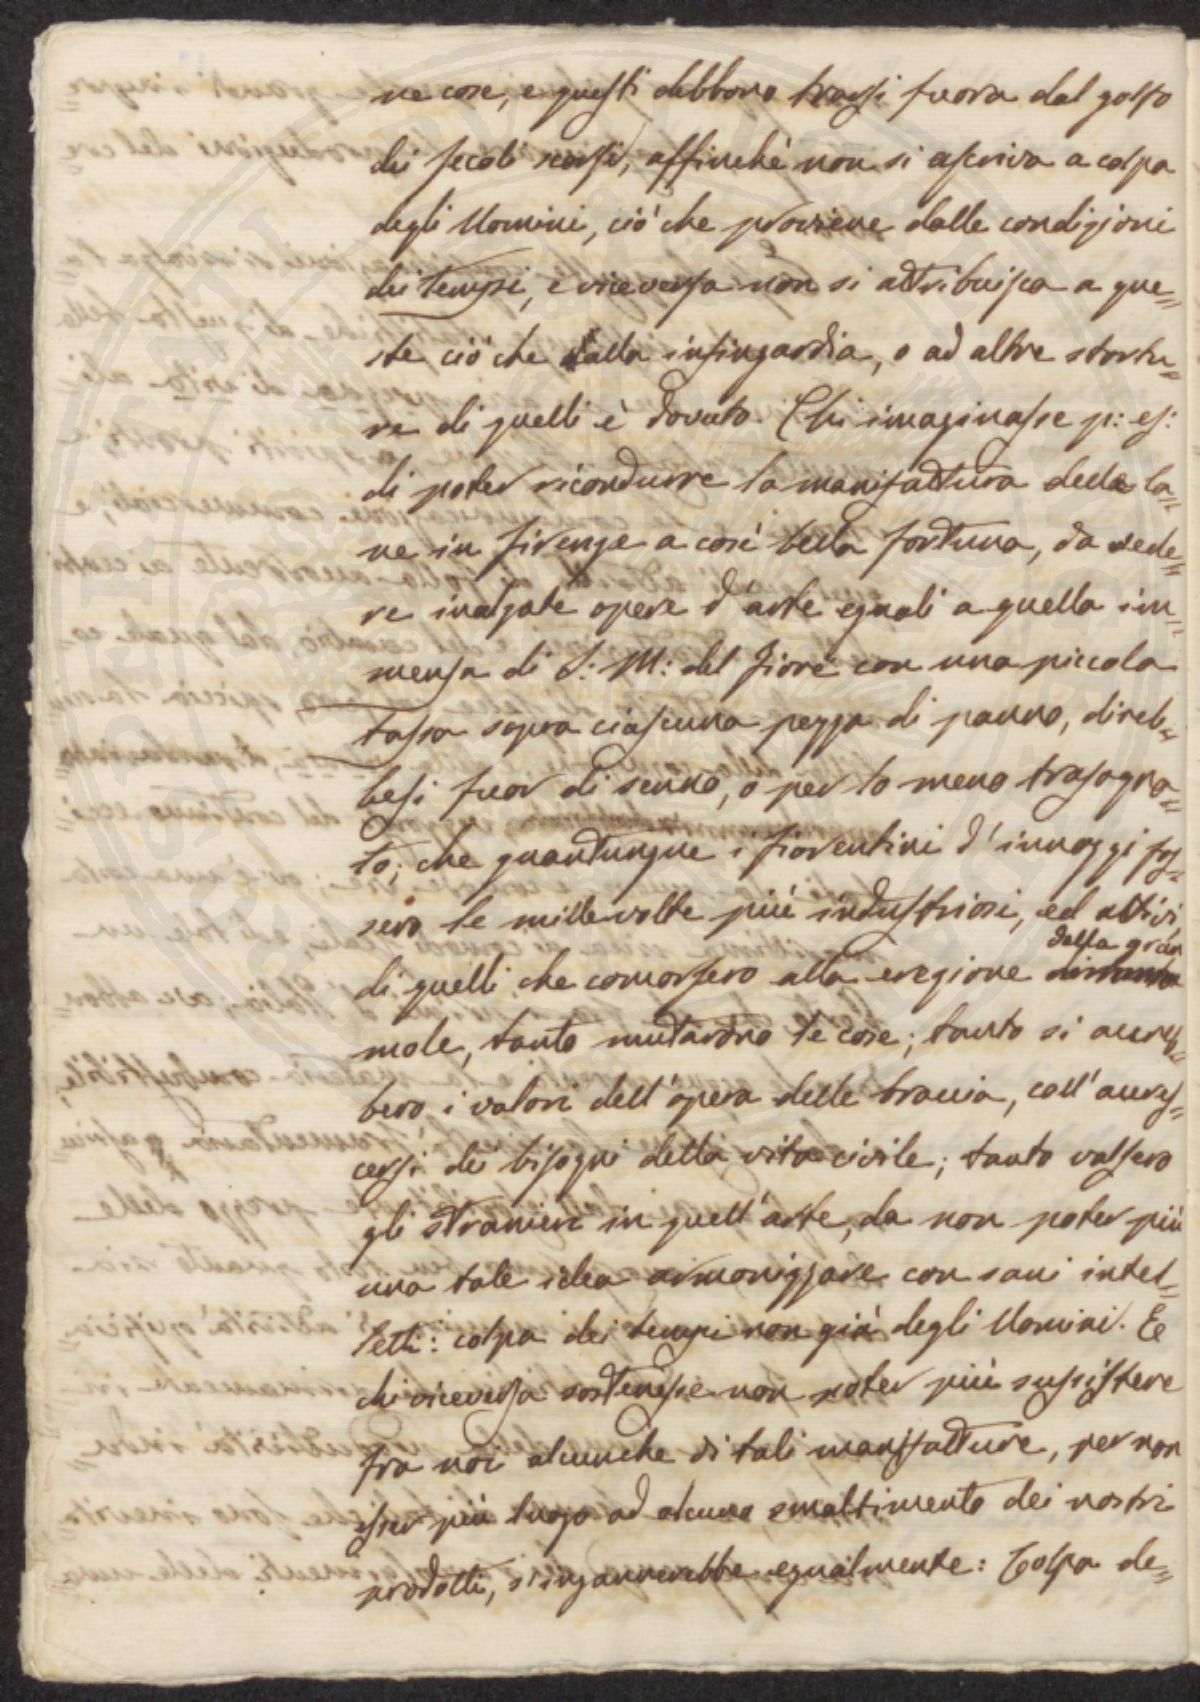 ne cose, e questi debbono trarsi fuora dal golfo
dei secoli scorsi, affinchè non si ascriva a colpa
degli Uomini, ciò che proviene dalle condizioni
dei tempi, e viceversa non si attribuisca a que=
ste ciò che dalla infingardia, o ad altre stortu=
re di quelli è dovuto. Chi imaginasse p: es:
di poter ricondurre la manifattura delle la=
ne in firenze a così bella fortuna, da vede=
re inalzate opere d'arte eguali a quella im=
mensa di S: M: del fiore con una piccola
tassa sopra ciascuna pezza di panno, direb=
besi fuor di senno, o per lo meno trasogna=
to; che quantunque i fiorentini d'innoggi fos=
sero le mille volte più industriosi, ed attivi
di quelli che concorsero alla erezione della gran
mole, tanto mutarono le cose; tanto si accreb=
bero i valori dell'opera delle braccia, coll'accres=
cersi dei bisogni della vita civile; tanto valsero
gli stranieri in quell'arte, da non poter più
una tale idea armonizzare con sani intel=
letti: colpa dei tempi non già degli Uomini. E
chi viceversa sostenesse non poter più sussistere
fra noi alcunche di tali manifatture, per non
esser più luogo ad alcuno smaltimento dei nostri
prodotti, s'ingannerebbe egualmente: Colpa de=